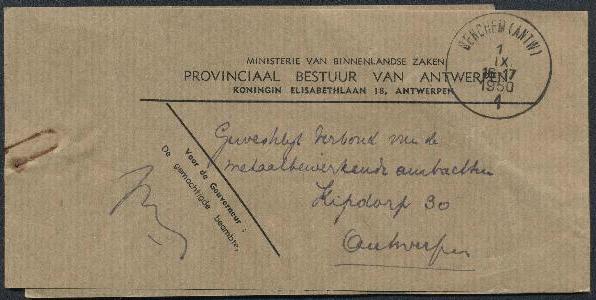 MINISTERIE VAN BINNENLANDSE ZAKEN
PROVINCIAAL BESTUUR VAN ANTWERPEN
KONINGIN ELISABETHLAAN 18, ANTWERPEN
BERCHEM (ANTW)
1
IX
16-17
1950
1
Voor de Gouverneur :
De gemachtigde beambte,
Gewestelijk Verbond van de
metaalbewerkende ambachten
Kipdorp 30
Antwerpen